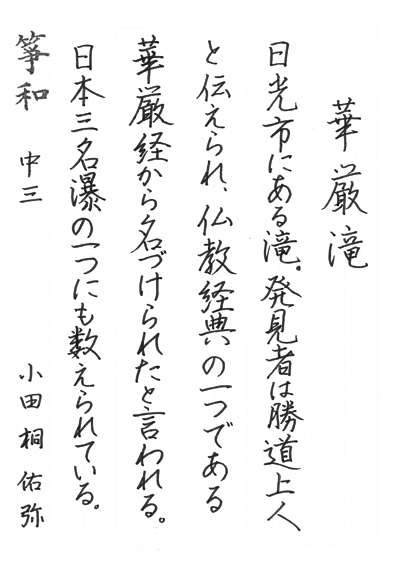 華厳滝
日光市にある滝。発見者は勝道上人
と伝えられ、仏教経典の一つである
華厳経から名づけられたと言われる。
日本三名瀑の一つにも数えられている。
箏和 中三 小田桐佑弥